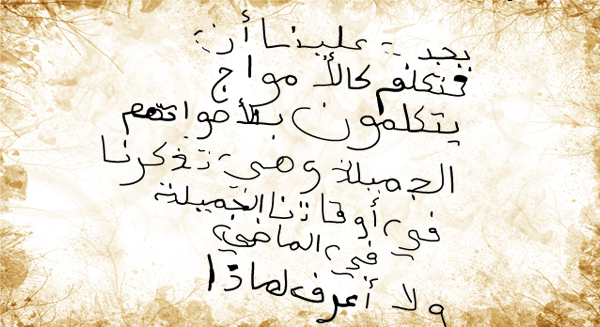 يجب علينا أن
نتكلم كالأمواج
يتكلمون بلأصواتهم
الجميلة وهي تذكرنا
في أوقاتنا الجميلة
في الماضي
ولا أعرف لماذا